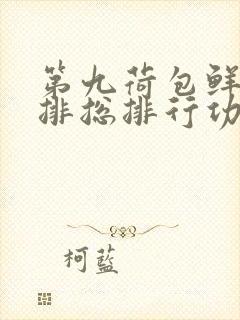 第九荷包鲜
排总排行功
柯蓝